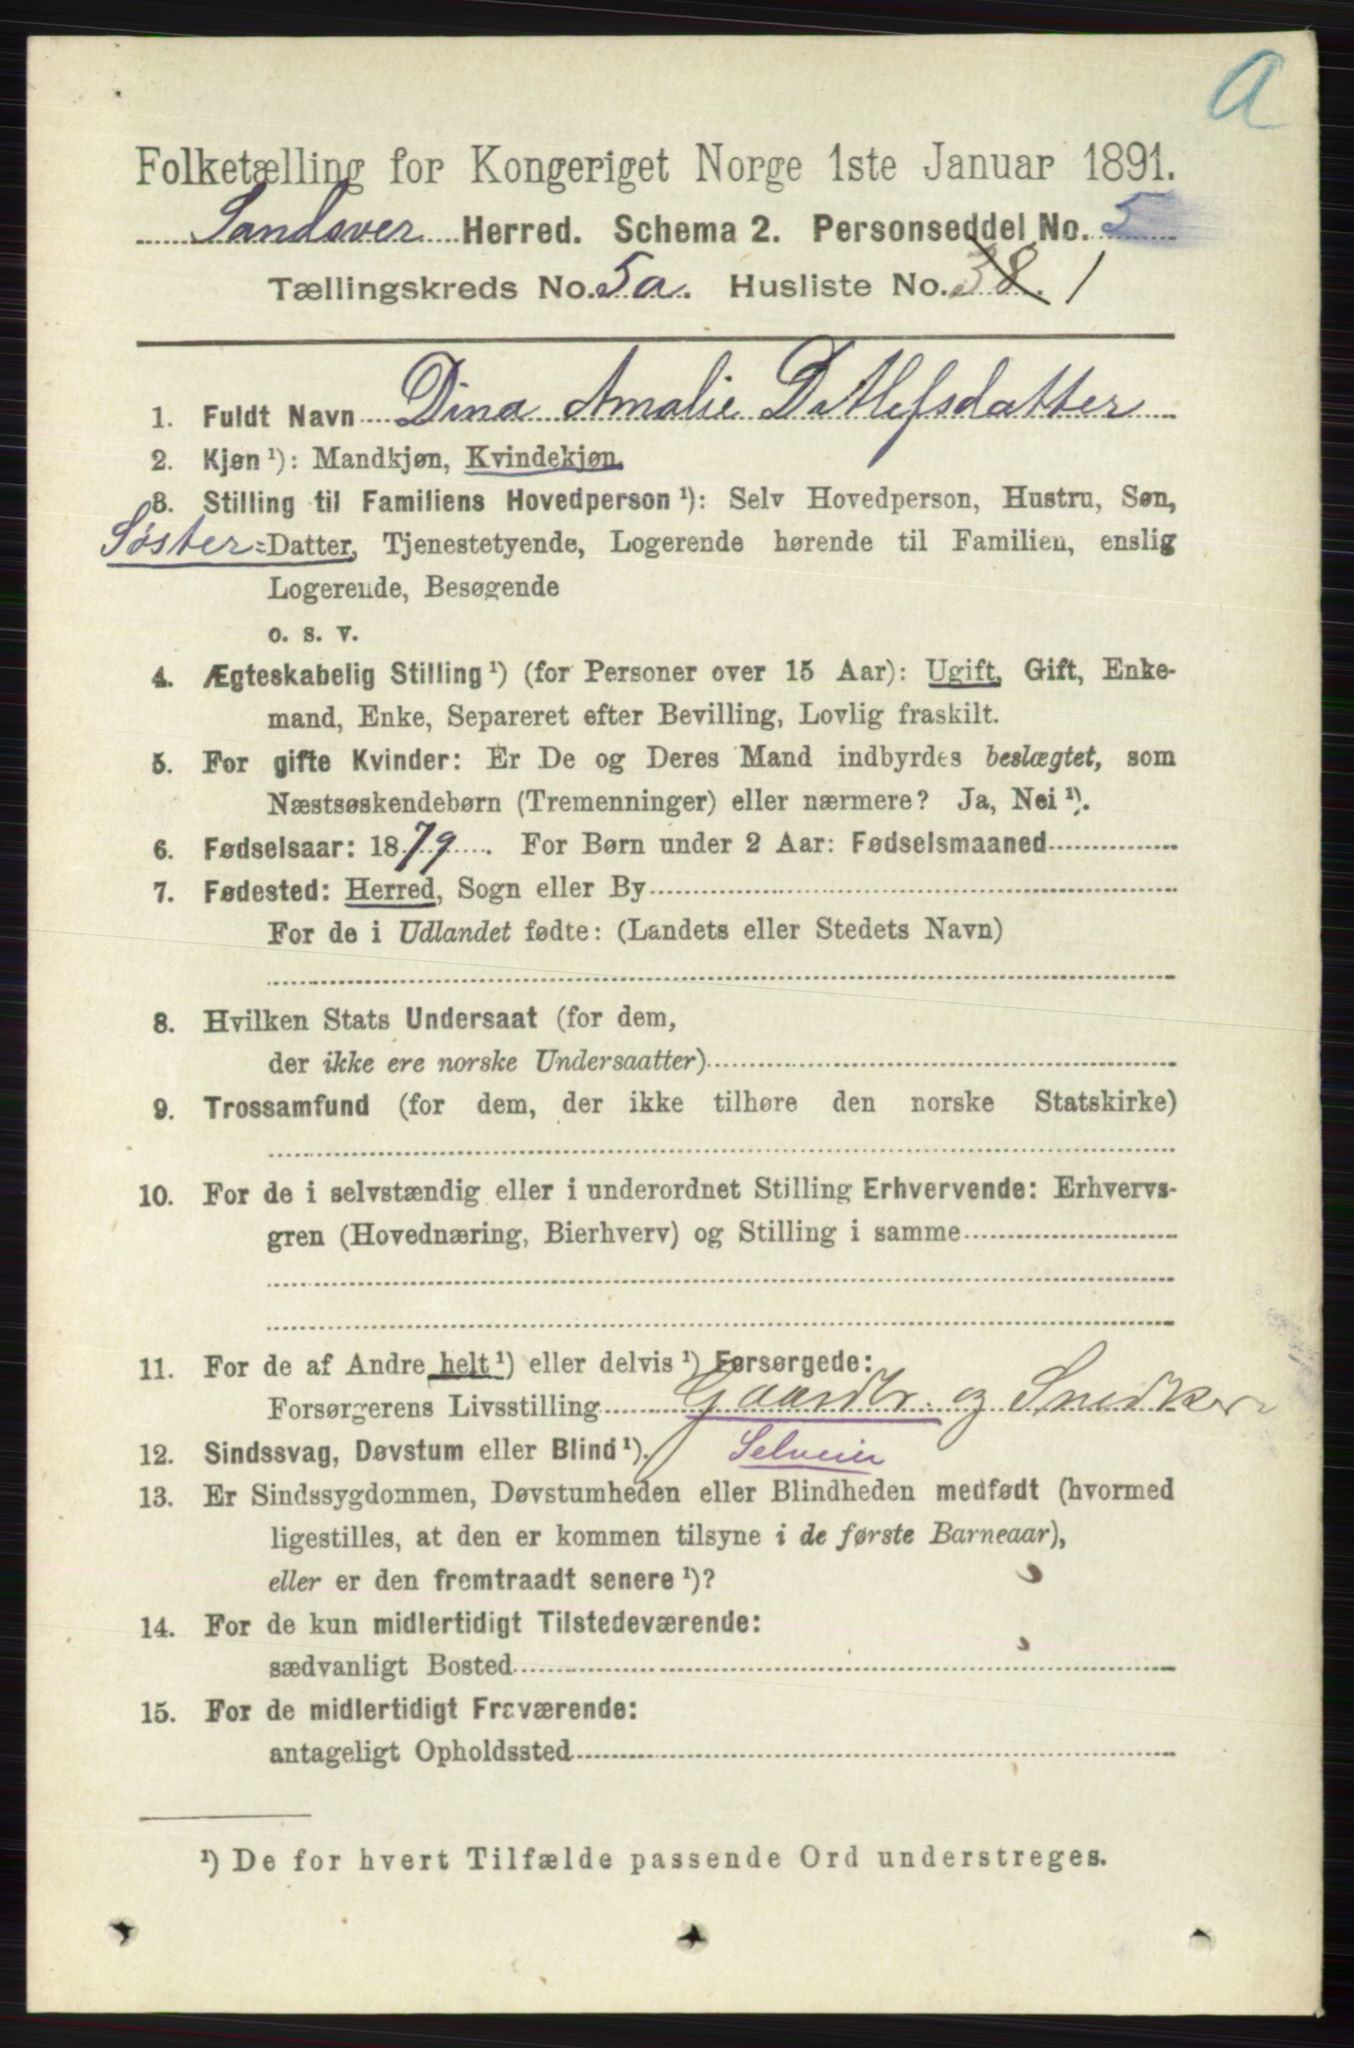 a
Folketælling for Kongeriget Norge 1ste Januar 1891.
Sandsver Herred. Schema 2. Personseddel No. 5
Tællingskreds No. 5a. Husliste No. 38. 1
1. Fuldt Navn Dina Amalie Ditlefsdatter
2. Kjøn ¹): Mandkjøn, Kvindekjøn.
3. Stilling til Familiens Hovedperson ¹): Selv Hovedperson, Hustru, Søn,
Søster=Datter, Tjenestetyende, Logerende hørende til Familien, enslig
Logerende, Besøgende
o. s. v.
4. Ægteskabelig Stilling ¹) (for Personer over 15 Aar): Ugift, Gift, Enke-
mand, Enke, Separeret efter Bevilling, Lovlig fraskilt.
5. For gifte Kvinder: Er De og Deres Mand indbyrdes beslægtet, som
Næstsøskendebørn (Tremenninger) eller nærmere? Ja, Nei ¹).
6. Fødselsaar: 1879. For Børn under 2 Aar: Fødselsmaaned
7. Fødested: Herred, Sogn eller By
For de i Udlandet fødte: (Landets eller Stedets Navn)
8. Hvilken Stats Undersaat (for dem,
der ikke ere norske Undersaatter)
9. Trossamfund (for dem, der ikke tilhøre den norske Statskirke)
10. For de i selvstændig eller i underordnet Stilling Erhvervende: Erhvervs-
gren (Hovednæring, Bierhverv) og Stilling i samme
11. For de af Andre helt ¹) eller delvis ¹) Forsørgede:
Forsørgerens Livsstilling Gaardbr. og Snedker
12. Sindssvag, Døvstum eller Blind ¹). Selveier
13. Er Sindssygdommen, Døvstumheden eller Blindheden medfødt (hvormed
ligestilles, at den er kommen tilsyne i de første Barneaar),
eller er den fremtraadt senere ¹)?
14. For de kun midlertidigt Tilstedeværende:
sædvanligt Bosted
15. For de midlertidigt Fraværende:
antageligt Opholdssted
¹) De for hvert Tilfælde passende Ord understreges.